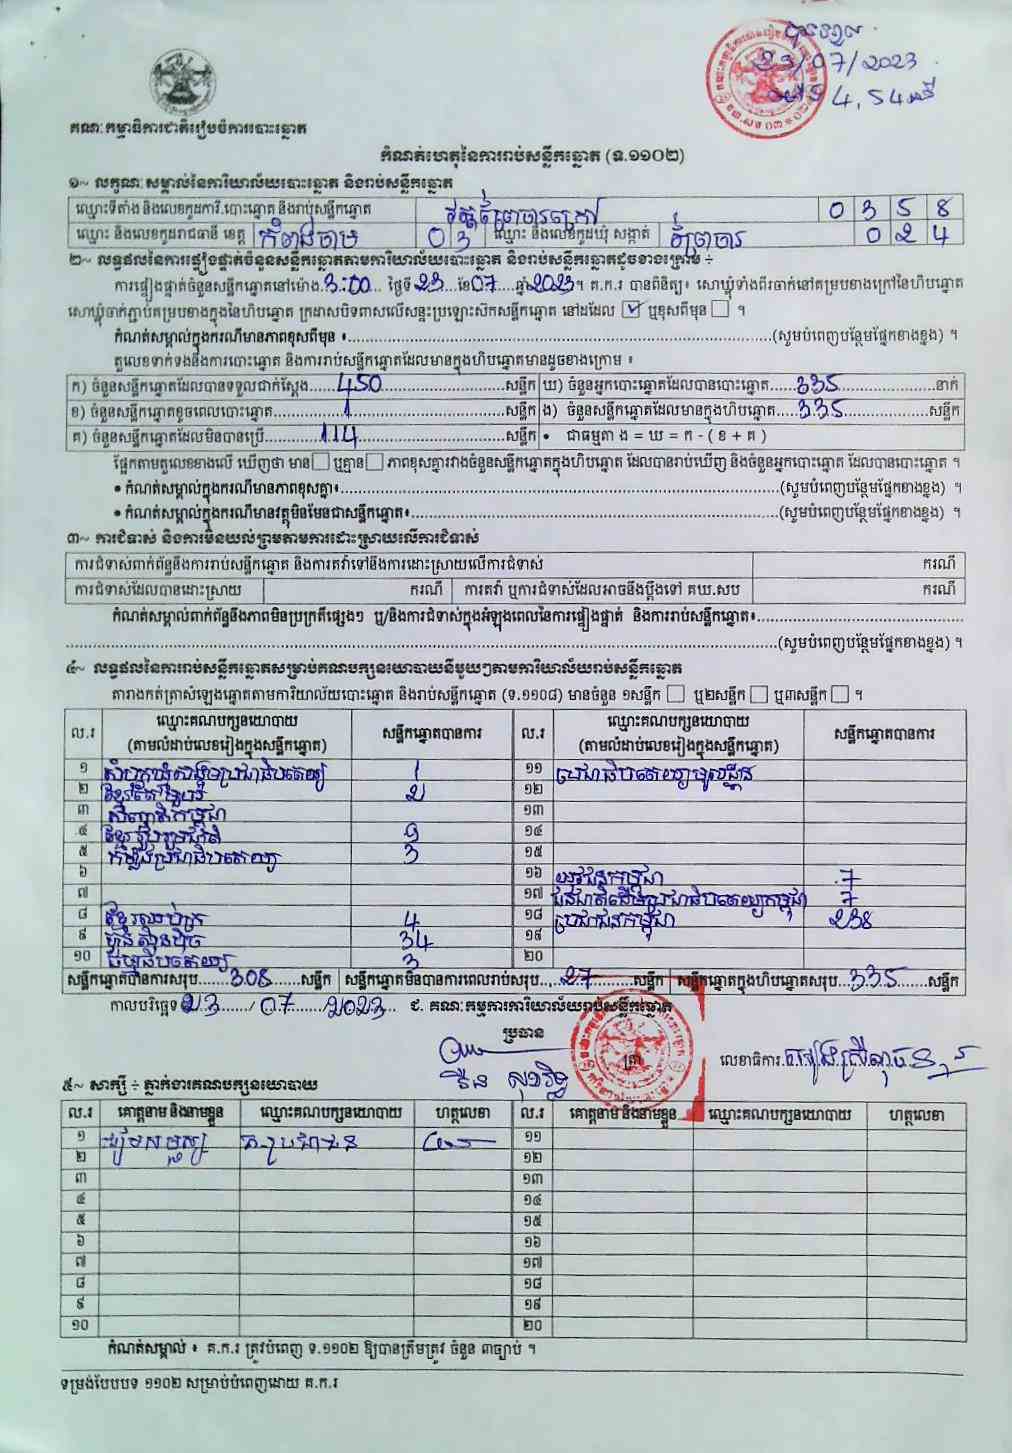 បានទទួល
23/07/2023
ម៉ោង 4,54 នាទី
គណៈកម្មាធិការជាតិរៀបចំការបោះឆ្នោត
កំណត់ហេតុនៃការរាប់សន្លឹកឆ្នោត (ទ.១១០២)
១~ លក្ខណៈសម្គាល់នៃការិយាល័យបោះឆ្នោត និងរាប់សន្លឹកឆ្នោត
ឈ្មោះទីតាំង និងលេខកូដការិ.បោះឆ្នោត និងរាប់សន្លឹកឆ្នោត វត្តព្រៃចារក្រៅ 0 3 5 8
ឈ្មោះ និងលេខកូដរាជធានី ខេត្ត កំពង់ចាម 0 3 ឈ្មោះ និងលេខកូដឃុំ សង្កាត់ ព្រៃចារ 0 2 4
២~ លទ្ធផលនៃការផ្ទៀងផ្ទាត់ចំនួនសន្លឹកឆ្នោតតាមការិយាល័យបោះឆ្នោត និងរាប់សន្លឹកឆ្នោតដូចខាងក្រោម ÷
ការផ្ទៀងផ្ទាត់ចំនួនសន្លឹកឆ្នោតនៅម៉ោង 3:00 ថ្ងៃទី 23 ខែ 07 ឆ្នាំ 2023 ។ គ.ក.រ បានពិនិត្យ៖ សោឃ្លុំទាំងពីរចាក់នៅគម្របខាងក្រៅនៃហិបឆ្នោត
សោឃ្លុំចាក់ភ្ជាប់គម្របខាងក្នុងនៃហិបឆ្នោត ក្រដាសបិទពាសលើសន្ទះប្រឡោះស៊កសន្លឹកឆ្នោត នៅដដែល ☑ ឬខុសពីមុន ☐ ។
កំណត់សម្គាល់ក្នុងករណីមានភាពខុសពីមុន ៖ (សូមបំពេញបន្ថែមផ្នែកខាងខ្នង) ។
តួលេខទាក់ទងនឹងការបោះឆ្នោត និងការរាប់សន្លឹកឆ្នោតដែលមានក្នុងហិបឆ្នោតមានដូចខាងក្រោម ៖
ក) ចំនួនសន្លឹកឆ្នោតដែលបានទទួលជាក់ស្តែង 450 សន្លឹក ឃ) ចំនួនអ្នកបោះឆ្នោតដែលបានបោះឆ្នោត 335 នាក់
ខ) ចំនួនសន្លឹកឆ្នោតខូចពេលបោះឆ្នោត 1 សន្លឹក ង) ចំនួនសន្លឹកឆ្នោតដែលមានក្នុងហិបឆ្នោត 335 សន្លឹក
គ) ចំនួនសន្លឹកឆ្នោតដែលមិនបានប្រើ 114 សន្លឹក • ជាធម្មតា ង = ឃ = ក - ( ខ + គ )
ផ្អែកតាមតួលេខខាងលើ ឃើញថា មាន ☐ ឬគ្មាន ☐ ភាពខុសគ្នារវាងចំនួនសន្លឹកឆ្នោតក្នុងហិបឆ្នោត ដែលបានរាប់ឃើញ និងចំនួនអ្នកបោះឆ្នោត ដែលបានបោះឆ្នោត ។
• កំណត់សម្គាល់ក្នុងករណីមានភាពខុសគ្នា៖ (សូមបំពេញបន្ថែមផ្នែកខាងខ្នង) ។
• កំណត់សម្គាល់ក្នុងករណីមានវត្ថុមិនមែនជាសន្លឹកឆ្នោត៖ (សូមបំពេញបន្ថែមផ្នែកខាងខ្នង) ។
៣~ ការជំទាស់ និងការមិនយល់ព្រមតាមការដោះស្រាយលើការជំទាស់
ការជំទាស់ពាក់ព័ន្ធនឹងការរាប់សន្លឹកឆ្នោត និងការតវ៉ាទៅនឹងការដោះស្រាយលើការជំទាស់ ករណី
ការជំទាស់ដែលបានដោះស្រាយ ករណី ការតវ៉ា ឬការជំទាស់ដែលអាចនឹងប្តឹងទៅ គឃ.សប ករណី
កំណត់សម្គាល់ពាក់ព័ន្ធនឹងភាពមិនប្រក្រតីផ្សេងៗ ឬ/និងការជំទាស់ក្នុងអំឡុងពេលនៃការផ្ទៀងផ្ទាត់ និងការរាប់សន្លឹកឆ្នោត៖
(សូមបំពេញបន្ថែមផ្នែកខាងខ្នង) ។
៤~ លទ្ធផលនៃការរាប់សន្លឹកឆ្នោតសម្រាប់គណបក្សនយោបាយនីមួយៗតាមការិយាល័យរាប់សន្លឹកឆ្នោត
តារាងកត់ត្រាសំឡេងឆ្នោតតាមការិយាល័យបោះឆ្នោត និងរាប់សន្លឹកឆ្នោត (ទ.១១០៨) មានចំនួន ១សន្លឹក ☐ ឬ២សន្លឹក ☐ ឬ៣សន្លឹក ☐ ។
ល.រ ឈ្មោះគណបក្សនយោបាយ សន្លឹកឆ្នោតបានការ ល.រ ឈ្មោះគណបក្សនយោបាយ សន្លឹកឆ្នោតបានការ
(តាមលំដាប់លេខរៀងក្នុងសន្លឹកឆ្នោត) (តាមលំដាប់លេខរៀងក្នុងសន្លឹកឆ្នោត)
១ សំបុកឃ្មុំសង្គមប្រជាធិបតេយ្យ 1 ១១ ប្រជាធិបតេយ្យមូលដ្ឋាន
២ ខ្មែរតែមួយ 2 ១២
៣ សញ្ជាតិកម្ពុជា ១៣
៤ ខ្មែររួបរួមជាតិ 9 ១៤
៥ កម្លាំងប្រជាធិបតេយ្យ 3 ១៥
៦ ១៦ យុវជនកម្ពុជា 7
៧ ១៧ ជនជាតិដើមប្រជាធិបតេយ្យកម្ពុជា 7
៨ ខ្មែរឈប់ក្រ 4 ១៨ ប្រជាជនកម្ពុជា 238
៩ ហ្វ៊ុនស៊ិនប៉ិច 34 ១៩
១០ ធម្មាធិបតេយ្យ 3 ២០
សន្លឹកឆ្នោតបានការសរុប 308 សន្លឹក សន្លឹកឆ្នោតមិនបានការពេលរាប់សរុប 27 សន្លឹក សន្លឹកឆ្នោតក្នុងហិបឆ្នោតសរុប 335 សន្លឹក
កាលបរិច្ឆេទ 23 / 07 / 2023 ជ. គណៈកម្មការការិយាល័យរាប់សន្លឹកឆ្នោត
ប្រធាន
ត្រា លេខាធិការ
៥~ សាក្សី ÷ ភ្នាក់ងារគណបក្សនយោបាយ
ល.រ គោត្តនាម និងនាមខ្លួន ឈ្មោះគណបក្សនយោបាយ ហត្ថលេខា ល.រ គោត្តនាម និងនាមខ្លួន ឈ្មោះគណបក្សនយោបាយ ហត្ថលេខា
១ ១១
២ ១២
៣ ១៣
៤ ១៤
៥ ១៥
៦ ១៦
៧ ១៧
៨ ១៨
៩ ១៩
១០ ២០
កំណត់សម្គាល់ ៖ គ.ក.រ ត្រូវបំពេញ ទ.១១០២ ឱ្យបានត្រឹមត្រូវ ចំនួន ៣ច្បាប់ ។
ទម្រង់បែបបទ ១១០២ សម្រាប់បំពេញដោយ គ.ក.រ